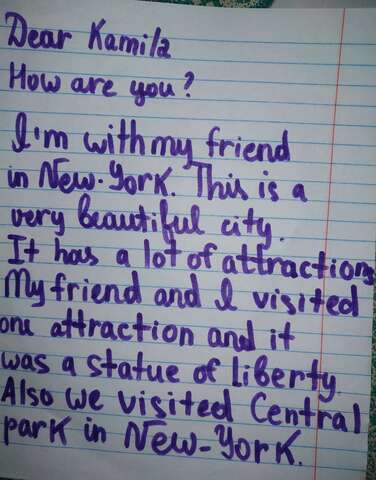 Dear Kamila
How are you?
I'm with my friend
in New-York. This is a
very beautiful city.
It has a lot of attractions
My friend and I visited
one attraction and it
was a statue of liberty.
Also we visited Central
park in New-York.